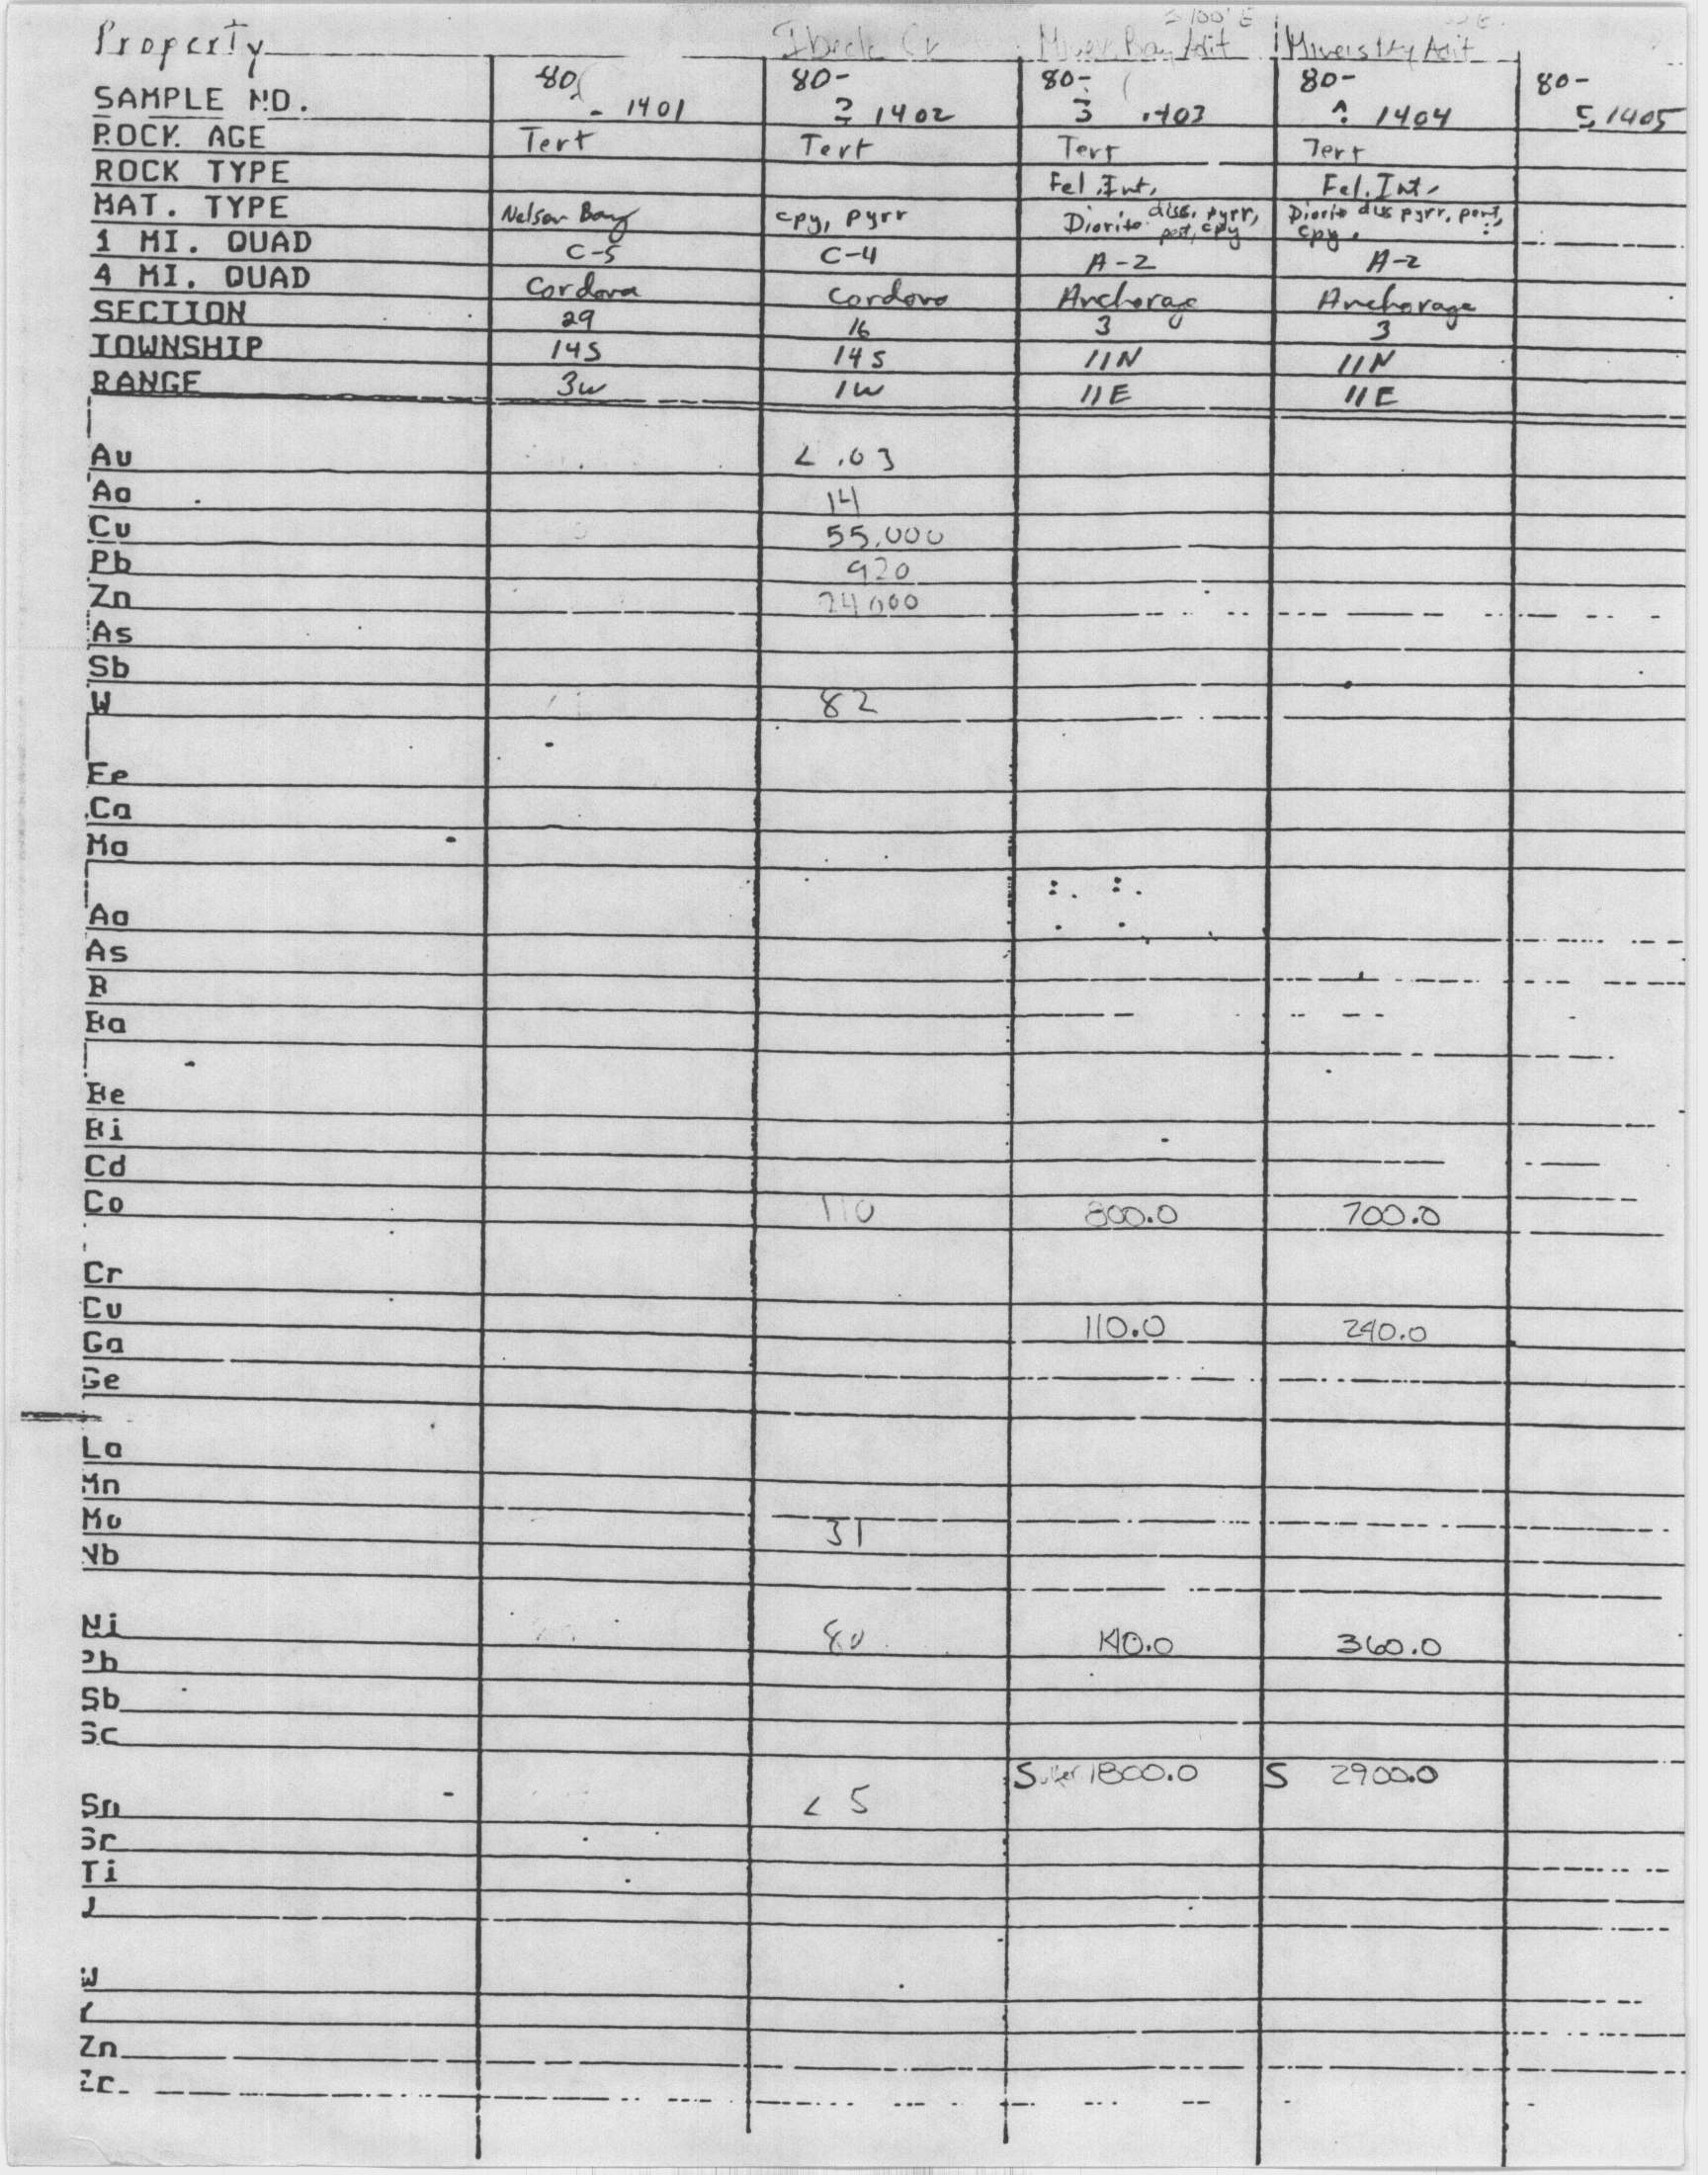 Property Ibeck Cr Miners Bay Adit Miners Bay Adit
80- 80- 80- 80- 80-
SAMPLE NO. - 1401 2 1402 3 1403 1404 5 1405
ROCK AGE Tert Tert Tert Tert
ROCK TYPE Fel. Int. Fel. Int.
MAT. TYPE Nelson Bay cpy, pyrr Diorite diss. pyrr, pent, cpy Diorite diss pyrr, pent, cpy.
1 MI. QUAD C-5 C-4 A-2 A-2
4 MI. QUAD Cordova Cordova Anchorage Anchorage
SECTION 29 16 3 3
TOWNSHIP 14S 14S 11N 11N
RANGE 3W 1W 11E 11E
Au < .03
Ag 14
Cu 55,000
Pb 920
Zn 24000
As
Sb
W 82
Fe
Ca
Mg
Ag
As
B
Ba
Be
Bi
Cd
Co 110 800.0 700.0
Cr
Cu 110.0 240.0
Ga
Ge
La
Mn
Mo 31
Nb
Ni 80 140.0 360.0
Pb
Sb
Sc
Sulfer 1800.0 S 2900.0
Sn < 5
Sr
Ti
U
W
Y
Zn
Zr